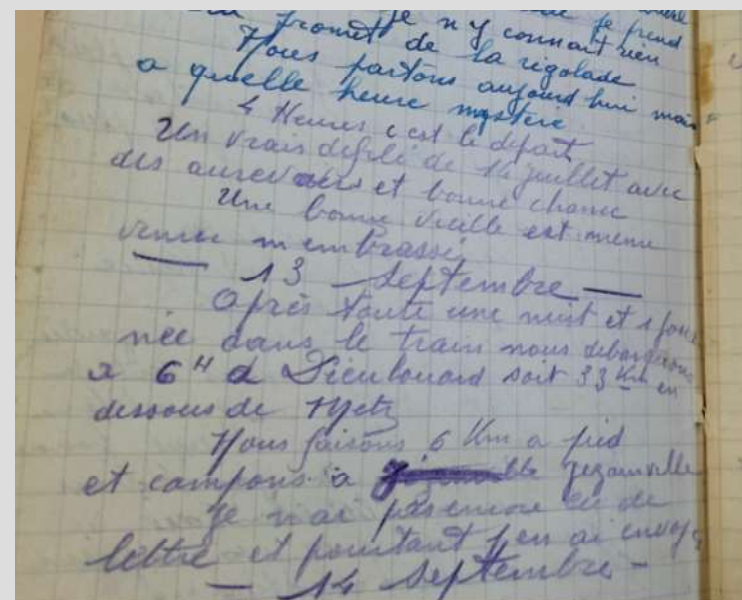 je prend
promet je n'y connait rien
de la rigolade
Nous partons aujourd hui mais
a quelle heure mystère
4 Heures c est le départ
Un vrais défilé de 14 juillet avec
des aurevoirs et bonne chance
Une bonne vieille est meme
venue m embrassé
— 13 Septembre —
Après toute une nuit et 1 jour
née dans le train nous debarquons
a 6H a Dieulouard soit 33 Km en
dessous de Metz
Nous faisons 6 Km a pied
et campons a Jezainville
Je n ai pas encore eu de
lettre et pourtant j en ai envoyé
— 14 Septembre —